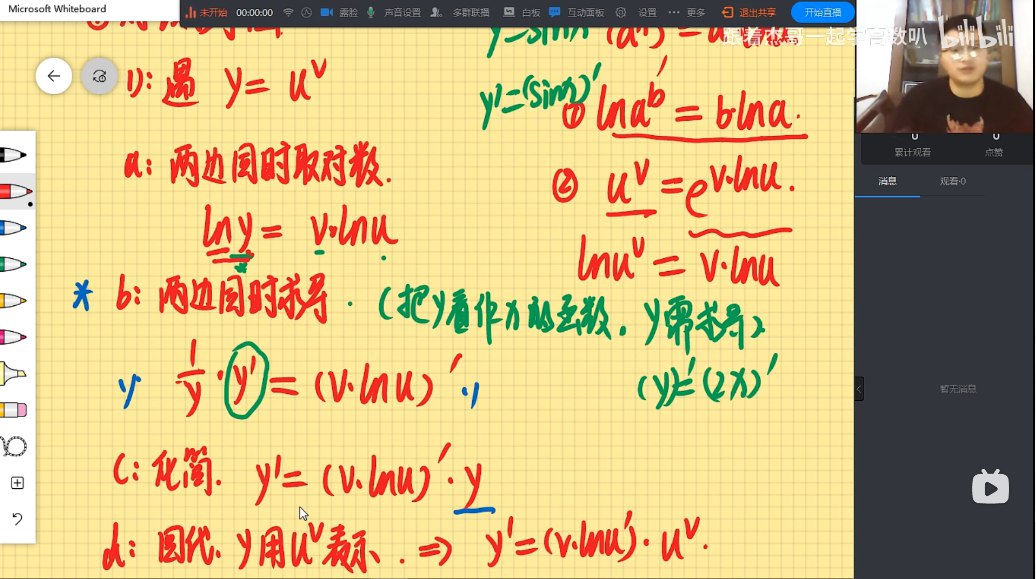 Microsoft Whiteboard
未开始 00:00:00 露脸 声音设置 多群联播 白板 互动面板 设置 更多 退出共享 开始直播
跟着杰哥一起学高数叭 bilibili
y=sinx
y'=(sinx)'
1): 遇 y = u^v
① lna^b = b·lna.
a: 两边同时取对数.
② u^v = e^{v·lnu}.
lny = v·lnu
lnu^v = v·lnu
* b: 两边同时求导. (把y看作x的函数. y需求导)
1/y · y' = (v·lnu)'
(y)'=(2x)'
c: 化简. y' = (v·lnu)'·y
d: 回代. y用u^v表示. ⇒ y'=(v·lnu)'·u^v.
0 0
累计观看 点赞
消息 观看·0
暂无消息